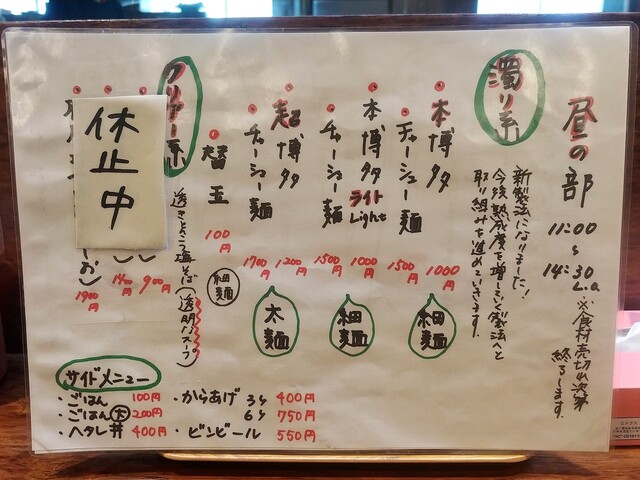 昼の部
11:00
〜
14:30
L.o.
※食材売切れ次第
終了します。
濁り系
新製法になりました!
今後熟成度を増していく製法へと
取り組みを進めていきます。
本博タ 1000円
チャーシュー麺 1500円
細麺
本博タ ライト Light 1000円
チャーシュー麺 1500円
細麺
超博タ 1200円
チャーシュー麺 1700円
太麺
替玉 100円
細麺
クリアー系
透きとおった塩そば(透明なスープ)
900円
1400円
1900円
休止中
サイドメニュー
・ごはん 100円
・ごはん大 200円
・ヘタレ丼 400円
・からあげ 3ケ 400円
6ケ 750円
・ビンビール 550円